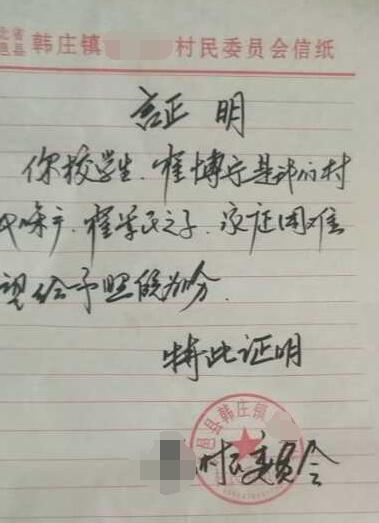 北省
邑县 韩庄镇 村民委员会信纸
证 明
你校学生,崔博宇是我们村
崔学民之子,家庭困难
望给予照顾为盼.
特此证明
邑县韩庄镇
村民委员会